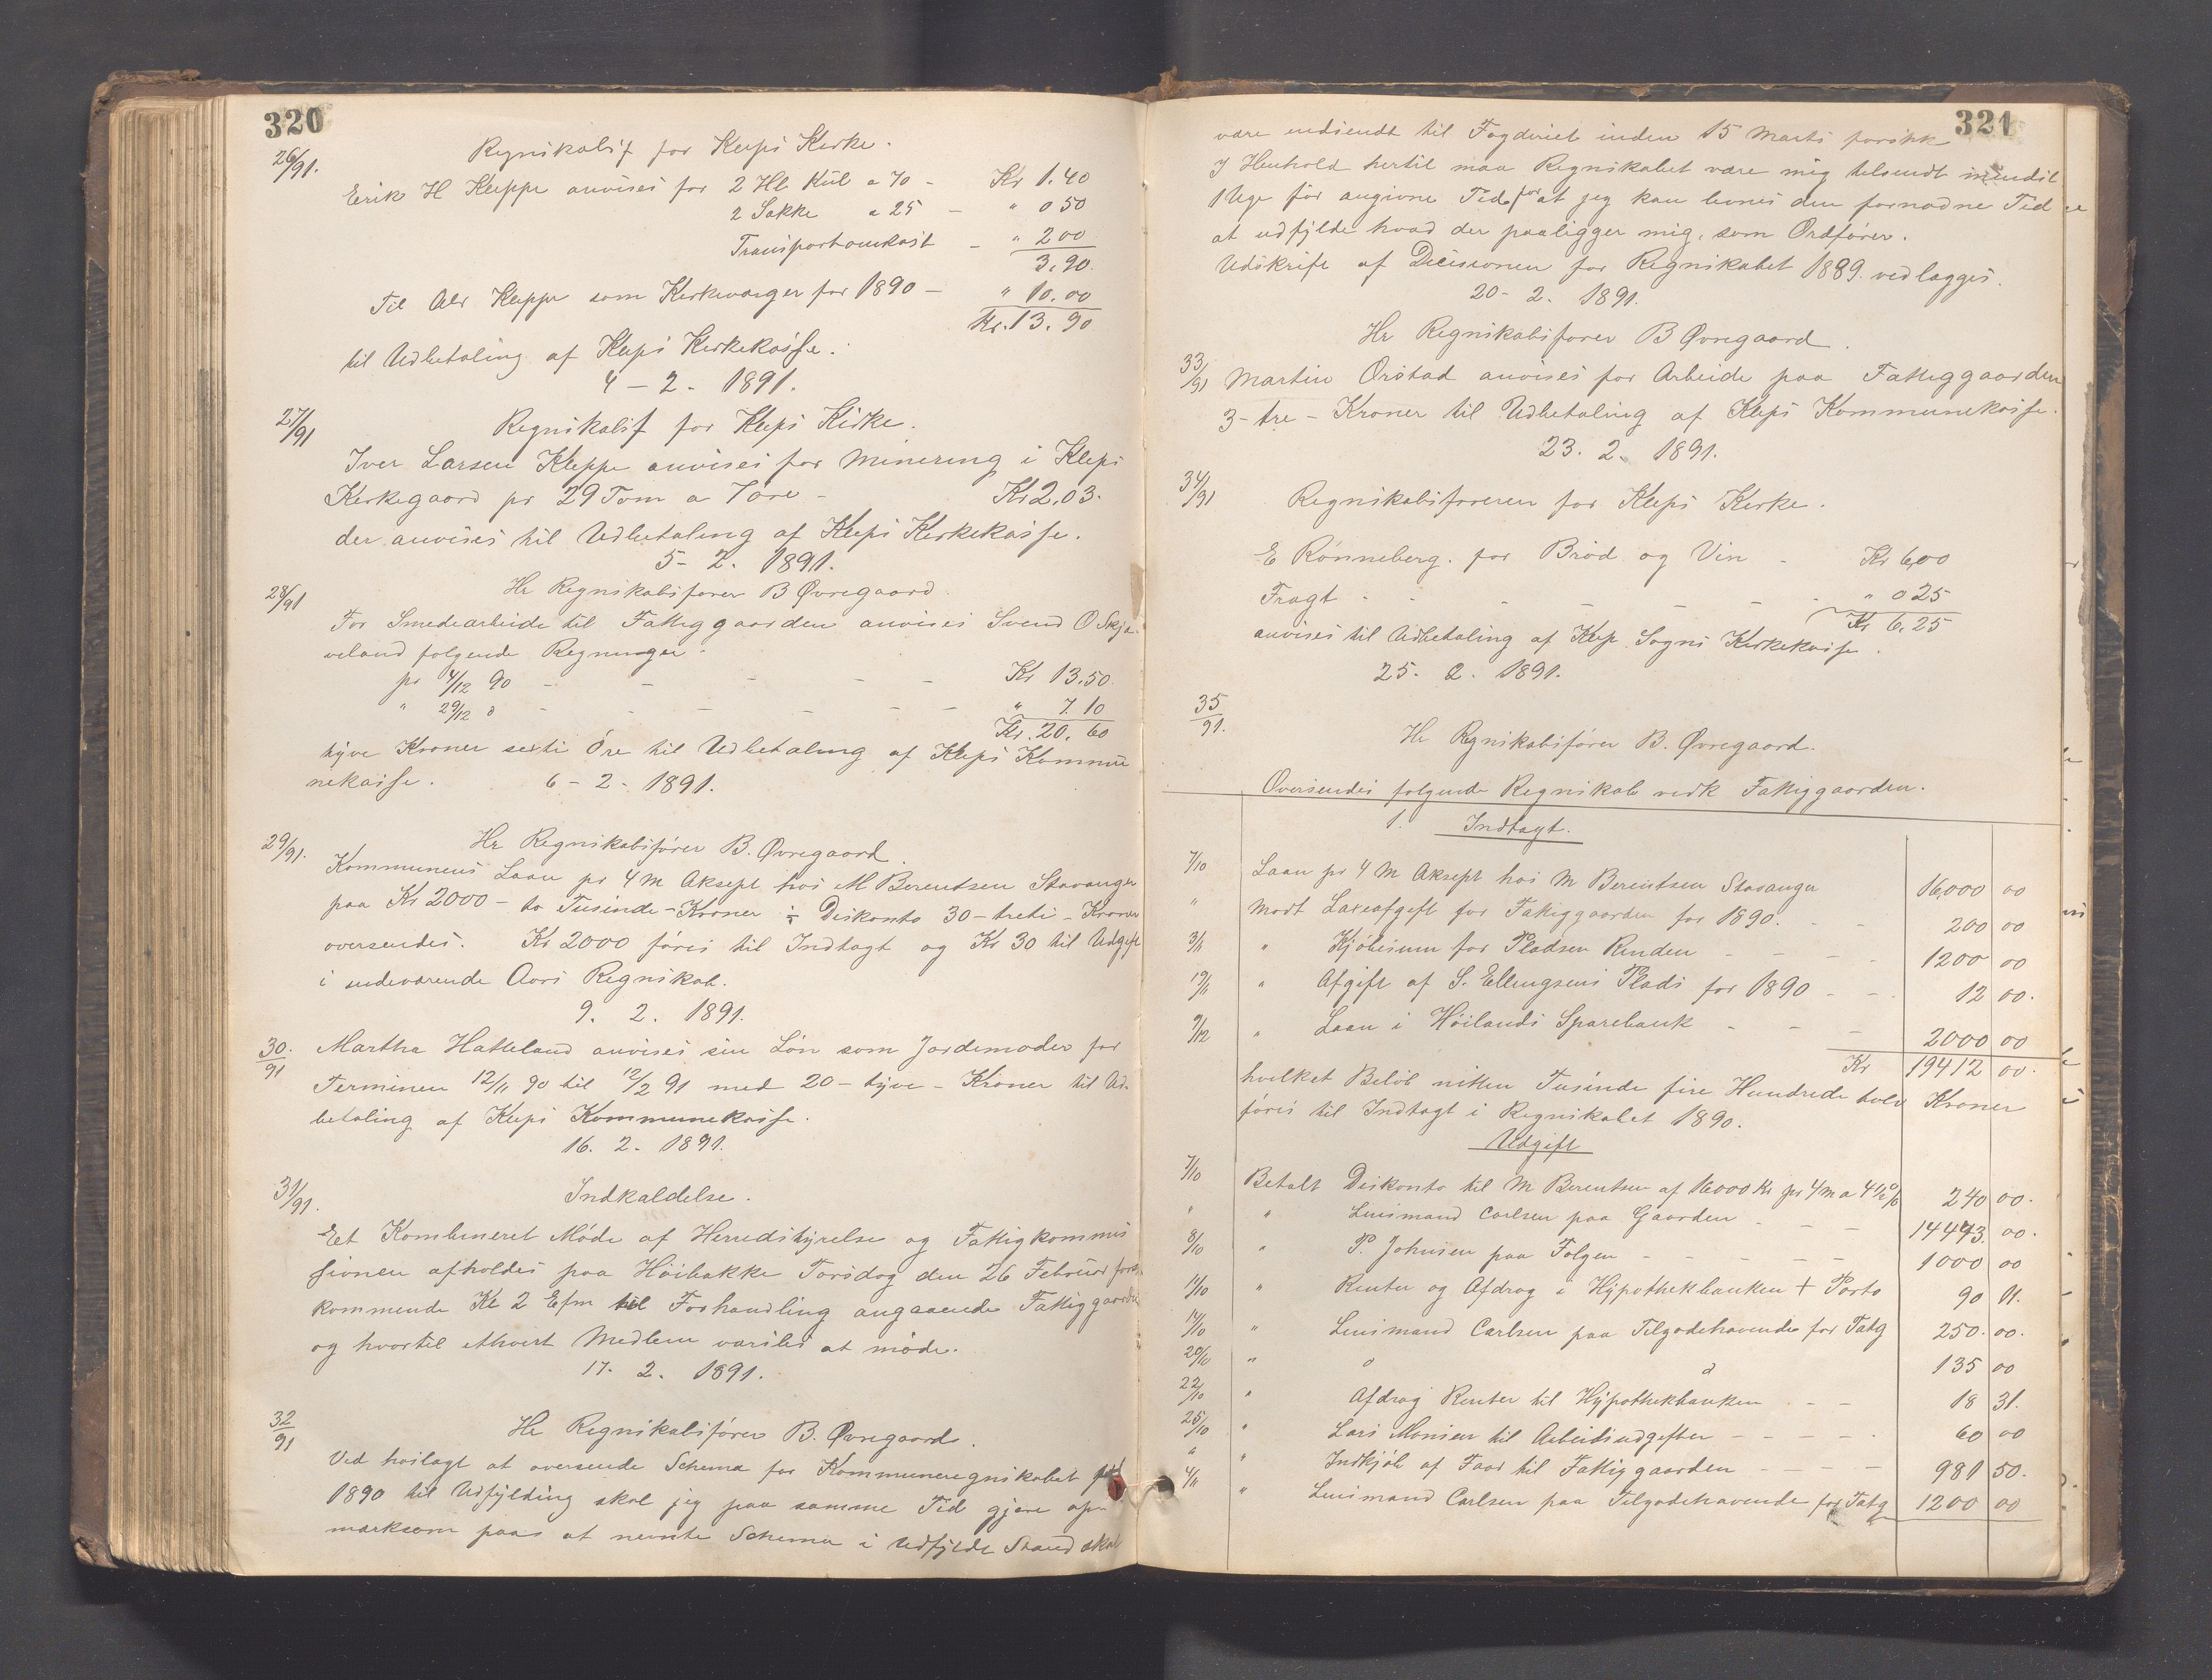 320
26/91. Regnskabsf for Keps Kirke.
Erik H Kleppe anvises for 2 Hl Kul a 70 - Kr 1.40
2 Sække a 25 - " 0 50
Transportomkost - " 2 00
3.90.
Til Ole Kleppe som Kirkeværger for 1890 - " 10.00
Kr. 13.90
til Udbetaling af Kleps Kirkekasse.
4 - 2 - 1891.
27/91 Regnskabsf for Kleps Kirke.
Iver Larsen Kleppe anvises for Minering i Kleps
Kirkegaard pr 29 Tom a 7 øre - Kr 2.03.
der anvises til Udbetaling af Kleps Kirkekasse.
5 - 2 - 1891.
28/91 Hr Regnskabsfører B Øvregaard
For Smedearbeide til Fattiggaarden anvises Svend O Skjæ-
veland følgende Regninger.
pr 4/12 90 - - - - - Kr 13.50.
" 29/12 d - - - - - " 7.10
Kr. 20.60
tyve Kroner sexti Øre til Udbetaling af Kleps Kommu
nekasse. 6 - 2 - 1891.
29/91. Hr Regnskabsfører B. Øvregaard.
Kommunens Laan pr 4 M Aksept hos M Berentsen Stavanger
paa Kr 2000 - to Tusinde - Kroner ÷ Diskonto 30 - treti - Kroner
oversendes. Kr 2000 føres til Indtægt og Kr 30 til Udgift
i indeværende Aars Regnskab.
9. 2. 1891.
30/91 Martha Hatteland anvises sin Løn som Jordemoder for
Terminen 12/11 90 til 12/2 91 med 20 - tyve - Kroner til Ud-
betaling af Kleps Kommunekasse.
16. 2. 1891.
31/91. Indkaldelse.
Et Kombineret Møde af Herredstyrelse og Fattigkommis
sionen afholdes paa Høibakke Torsdag den 26 Februar først-
kommende Kl 2 Efm til Forhandling angaaende Fattiggaarden
og hvortil ethvert Medlem varsles at møde.
17. 2. 1891.
32/91 Hr Regnskabsfører B. Øvregaard.
Ved hoslagt at oversende Schema for Kommuneregnskabet for
1890 til Udfylding skal jeg paa samme Tid gjøre op-
mærksom paa at nævnte Schema i Udfyldt Stand skal
321
være indsendt til Fogderiet inden 15 Marts førstk
I Henhold hertil maa Regnskabet være mig tilsendt mindst
1 Uge før angivne Tid for at jeg kan levnes den fornødne Tid
at udfylde hvad der paaligger mig, som Ordfører.
Udskrift af Decisionen for Regnskabet 1889 vedlægges.
20 - 2. 1891.
Hr Regnskabsfører B Øvregaard.
33/91 Martin Orstad anvises for Arbeide paa Fattiggaarden
3 - tre - Kroner til Udbetaling af Kleps Kommunekasse.
23. 2. 1891.
34/91 Regnskabsføreren for Kleps Kirke.
E Rønneberg. for Brød og Vin - Kr 6,00
Fragt - - - - - - " 0 25
Kr 6,25
anvises til Udbetaling af Klep Sogns Kirkekasse.
25. 2. 1891.
35/91. Hr Regnskabsfører B. Øvregaard.
Oversendes følgende Regnskab vedk Fattiggaarden.
1. Indtægt.
7/10 Laan pr 4 M Aksept hos M Berentsen Stavanger 16,000 00
" Modt Laxeafgift for Fattiggaarden for 1890. - - 200 00
3/11 " Kjøbesum for Pladsen Renden - - - - 1200 00
19/11 " Afgift af S. Ellingsens Plads for 1890 - - 12 00.
9/12 " Laan i Høilands Sparebank - - - 2000 00
Kr 19412 00.
hvilket Beløb nitten Tusinde fire Hundrede tolv Kroner
føres til Indtægt i Regnskabet 1890.
Udgift
7/10 Betalt Diskonto til M Berentsen af 16000 Kr pr 4 m a 4 1/2 % 240 00.
" " Lensmand Carlsen paa Gaarden - - - 14473. 00.
8/10 " P. Johnsen paa Følgen - - - - - 1000 00
14/10 " Renter og Afdrag i Hypothekbanken + Porto 90 11.
14/10 " Lensmand Carlsen paa Tilgodehavende for Fatg 250. 00.
20/10 " d d 135 00
22/10 " Afdrag Renter til Hypothekbanken - - 18 31.
25/10 " Lars Monsen til Arbeidsudgifter - - - - - 60 00
" " Indkjøb af Faar til Fattiggaarden - - - 981 50.
4/11 " Lensmand Carlsen paa Tilgodehavende for Fatg 1200 00